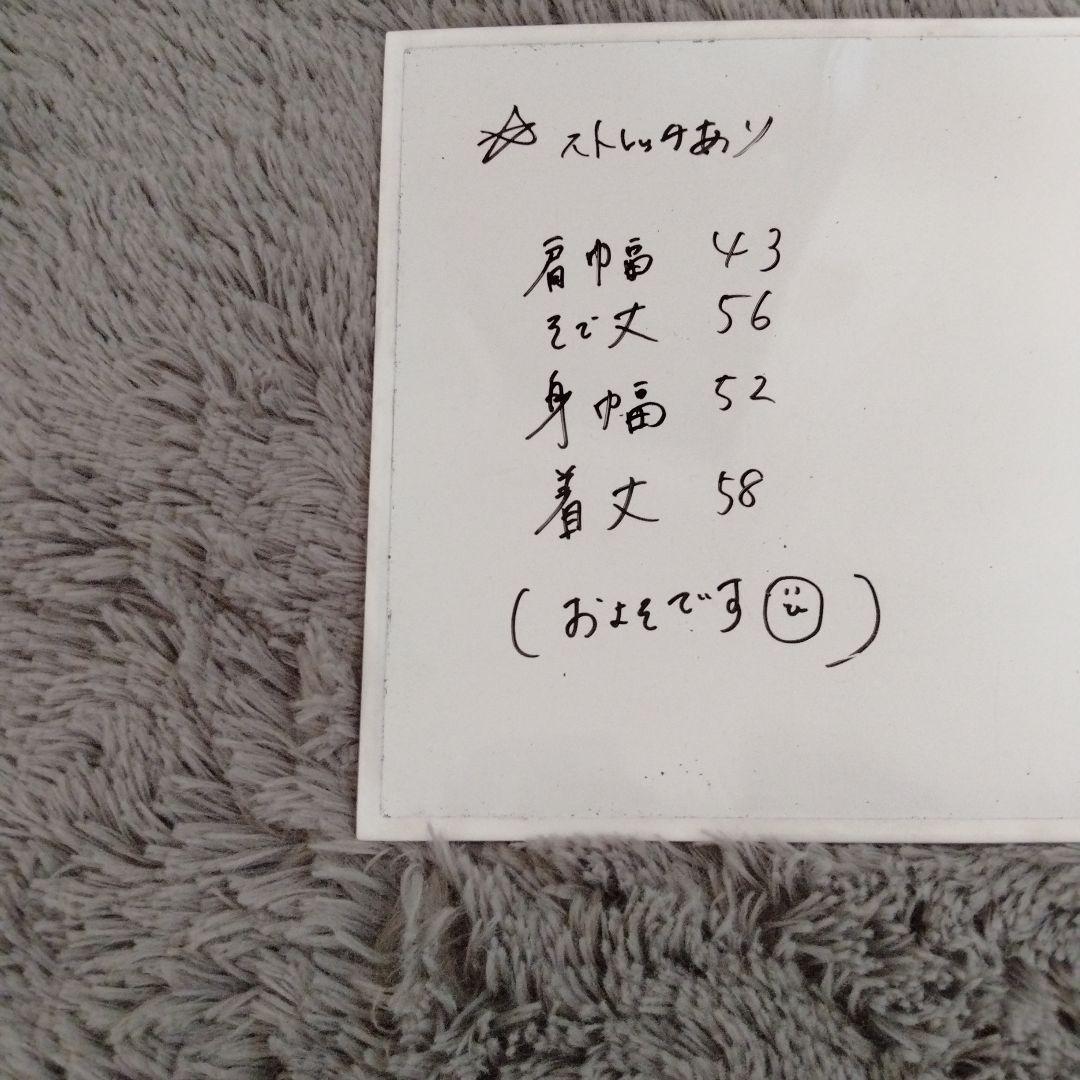 ☆ ストレッチあり
肩巾幅 43
そで丈 56
身幅 52
着丈 58
(およそです☺)